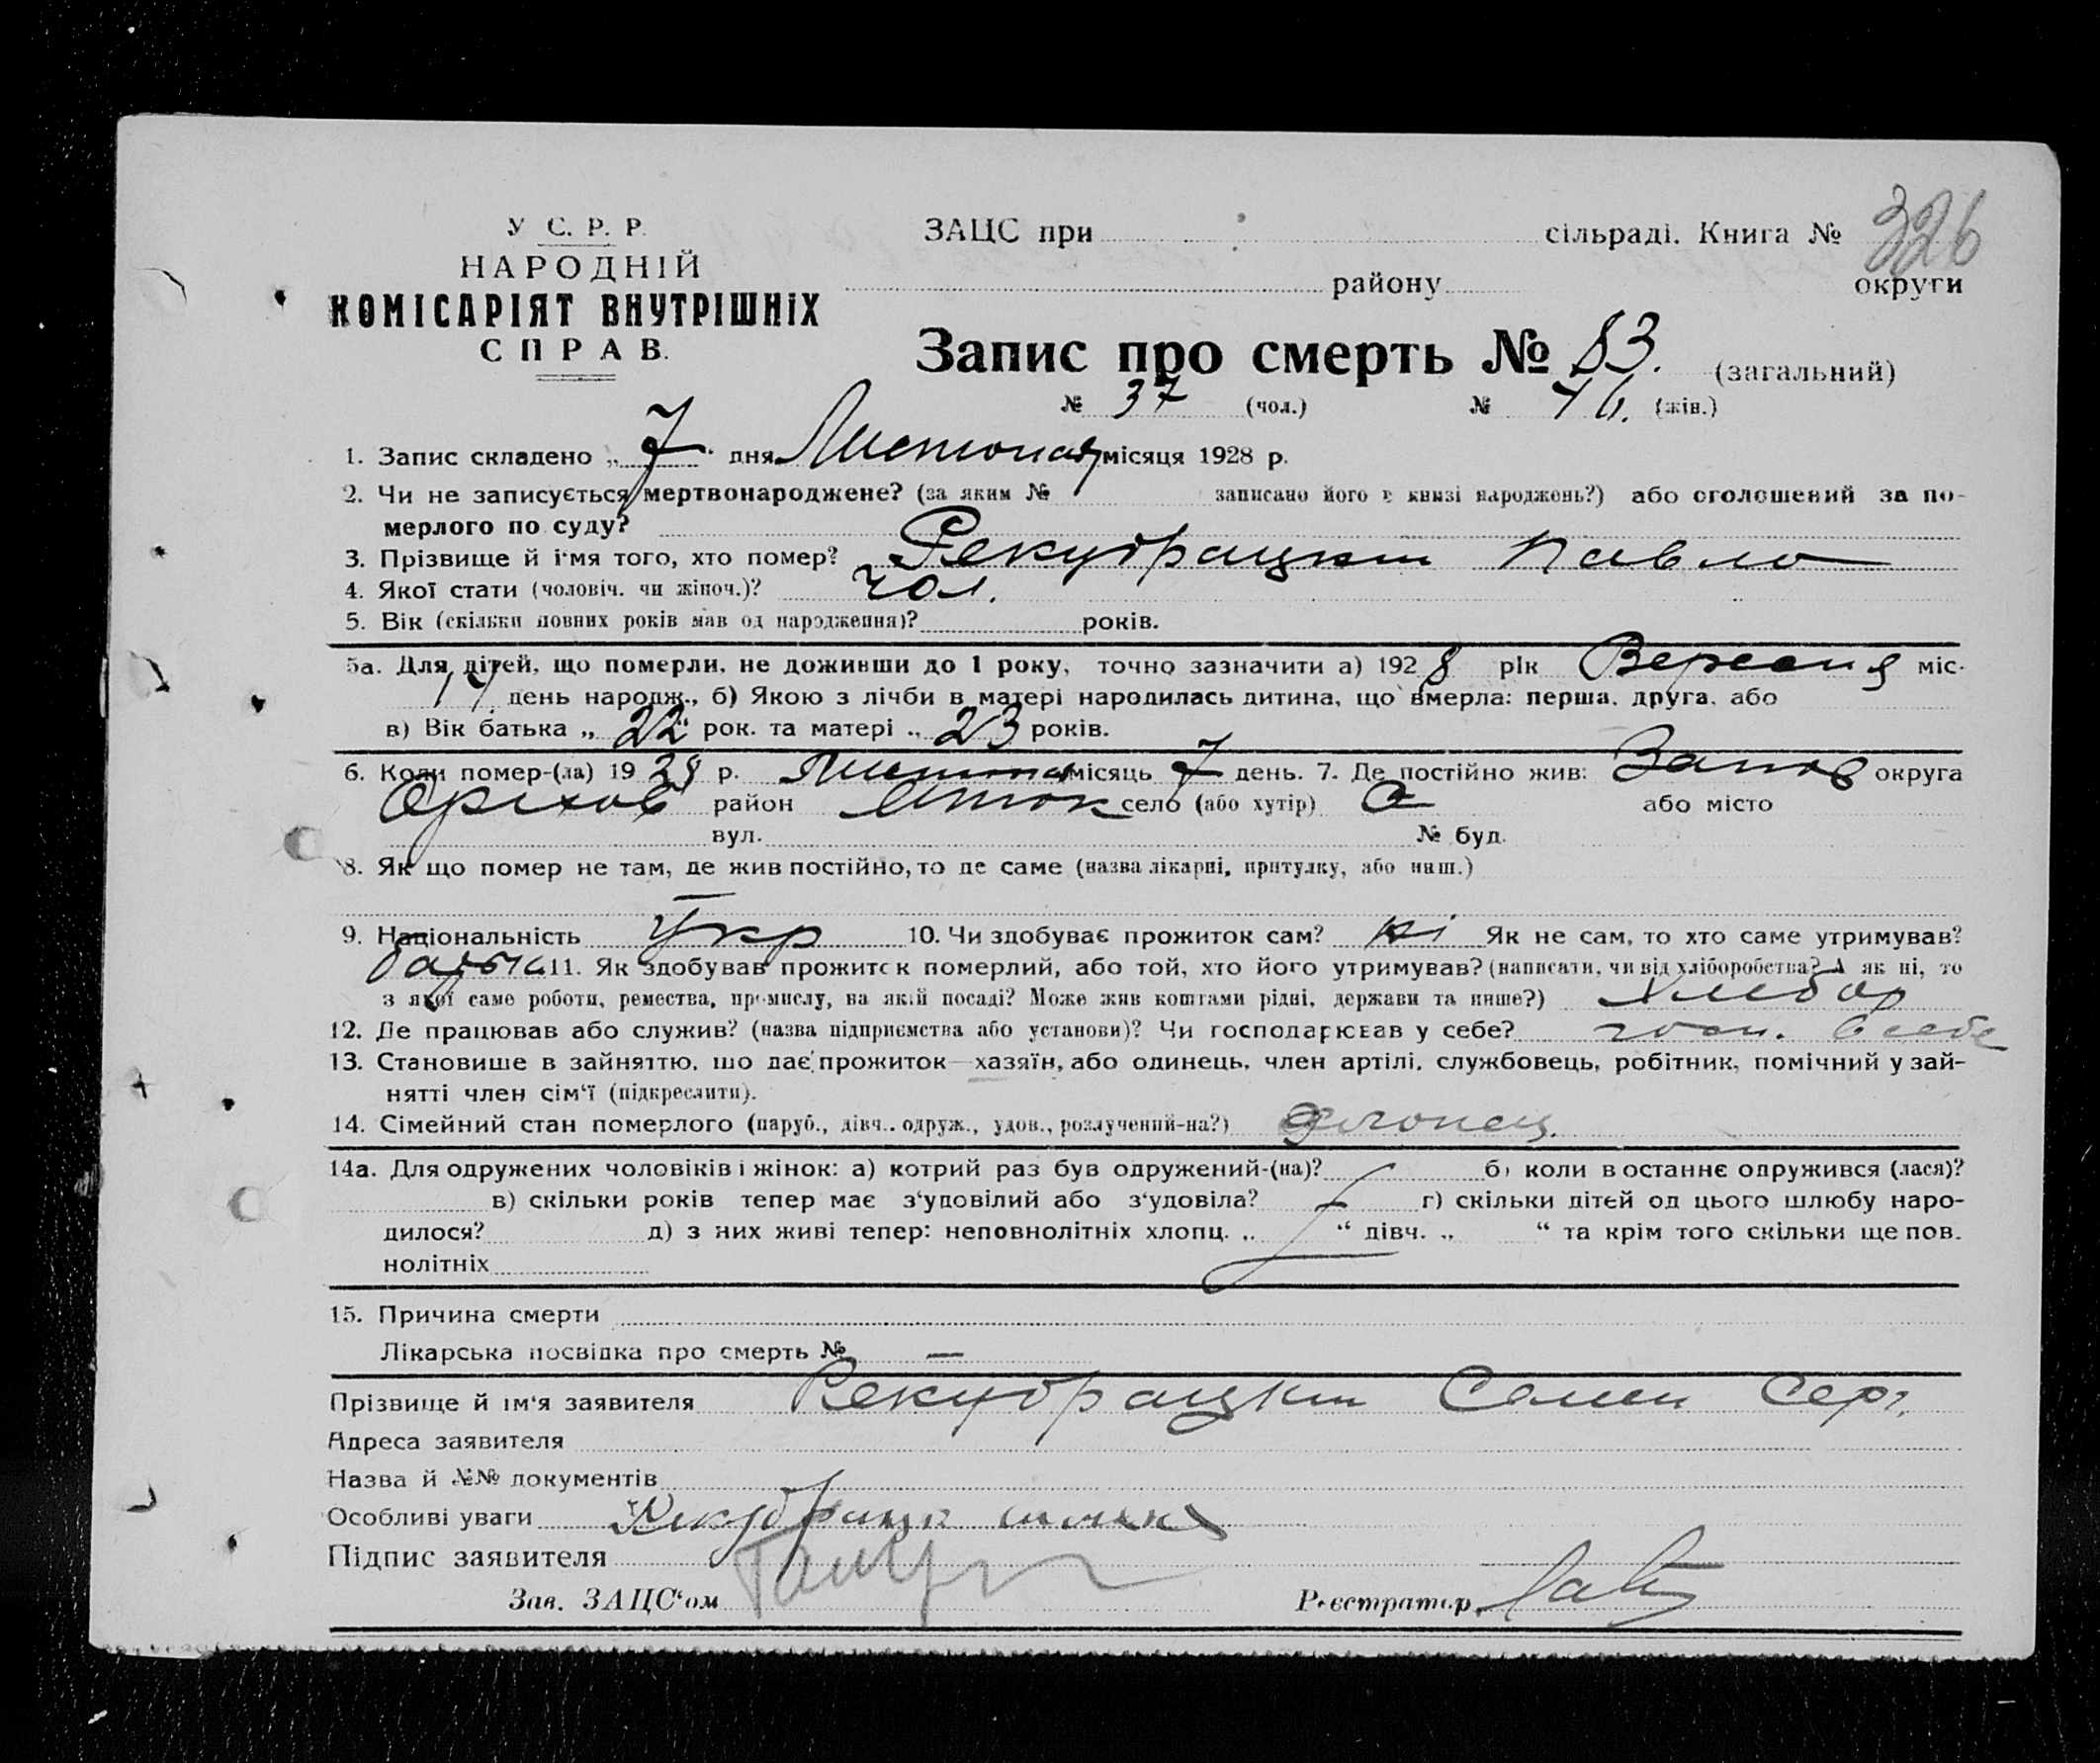 У С. Р. Р.
НАРОДНІЙ
КОМІСАРІЯТ ВНУТРІШНІХ
СПРАВ.
ЗАЦС при сільраді. Книга № 326
району округи
Запис про смерть № 83. (загальний)
№ 37 (чол.) № 46. (жін.)
1. Запис складено „ 7 " дня Листопад місяця 1928 р.
2. Чи не записується мертвонароджене? (за яким № записано його в книзі народжень?) або оголошений за по-
мерлого по суду?
3. Прізвище й ім'я того, хто помер? Рекубрацкии Павло
4. Якої стати (чоловіч. чи жіноч.)? чол.
5. Вік (скільки повних років мав од народження)? років.
5а. Для дітей, що померли, не доживши до 1 року, точно зазначити а) 1928 рік Вересня міс.
день народж., б) Якою з лічби в матері народилась дитина, що вмерла: перша, друга, або
в) Вік батька „ 22 " рок. та матері „ 23 років.
6. Коли помер-(ла) 1928 р. Листопад місяць 7 день. 7. Де постійно жив: Запор округа
Оріхов район село (або хутір) або місто
вул. № буд.
8. Як що помер не там, де жив постійно, то де саме (назва лікарні, притулку, або инш.)
9. Національність Укр 10. Чи здобуває прожиток сам? ні Як не сам, то хто саме утримував?
батька 11. Як здобував прожиток померлий, або той, хто його утримував? (написати, чи від хліборобства? А як ні, то
з якої саме роботи, ремества, промислу, на якій посаді? Може жив коштами рідні, держави та инше?) Хлебор
12. Де працював або служив? (назва підприємства або установи)? Чи господарював у себе? госп. в себе
13. Становище в зайняттю, що дає прожиток—хазяїн, або одинець, член артілі, службовець, робітник, помічний у зай-
нятті член сім'ї (підкреслити).
14. Сімейний стан померлого (паруб., дівч., одруж., удов., розлучений-на?) хлопец.
14а. Для одружених чоловіків і жінок: а) котрий раз був одружений-(на)? б) коли востаннє одружився (лася)?
в) скільки років тепер має з'уповілий або з'удовіла? г) скільки дітей од цього шлюбу наро-
дилося? д) з них живі тепер: неповнолітніх хлопц. „ " дівч. „ " та крім того скільки ще пов.
нолітніх
15. Причина смерти
Лікарська посвідка про смерть № —
Прізвище й ім'я заявителя Рекубрацкии Семен Серг.
Адреса заявителя
Назва й №№ документів
Особливі уваги
Підпис заявителя
Зав. ЗАЦС'ом Реєстратор